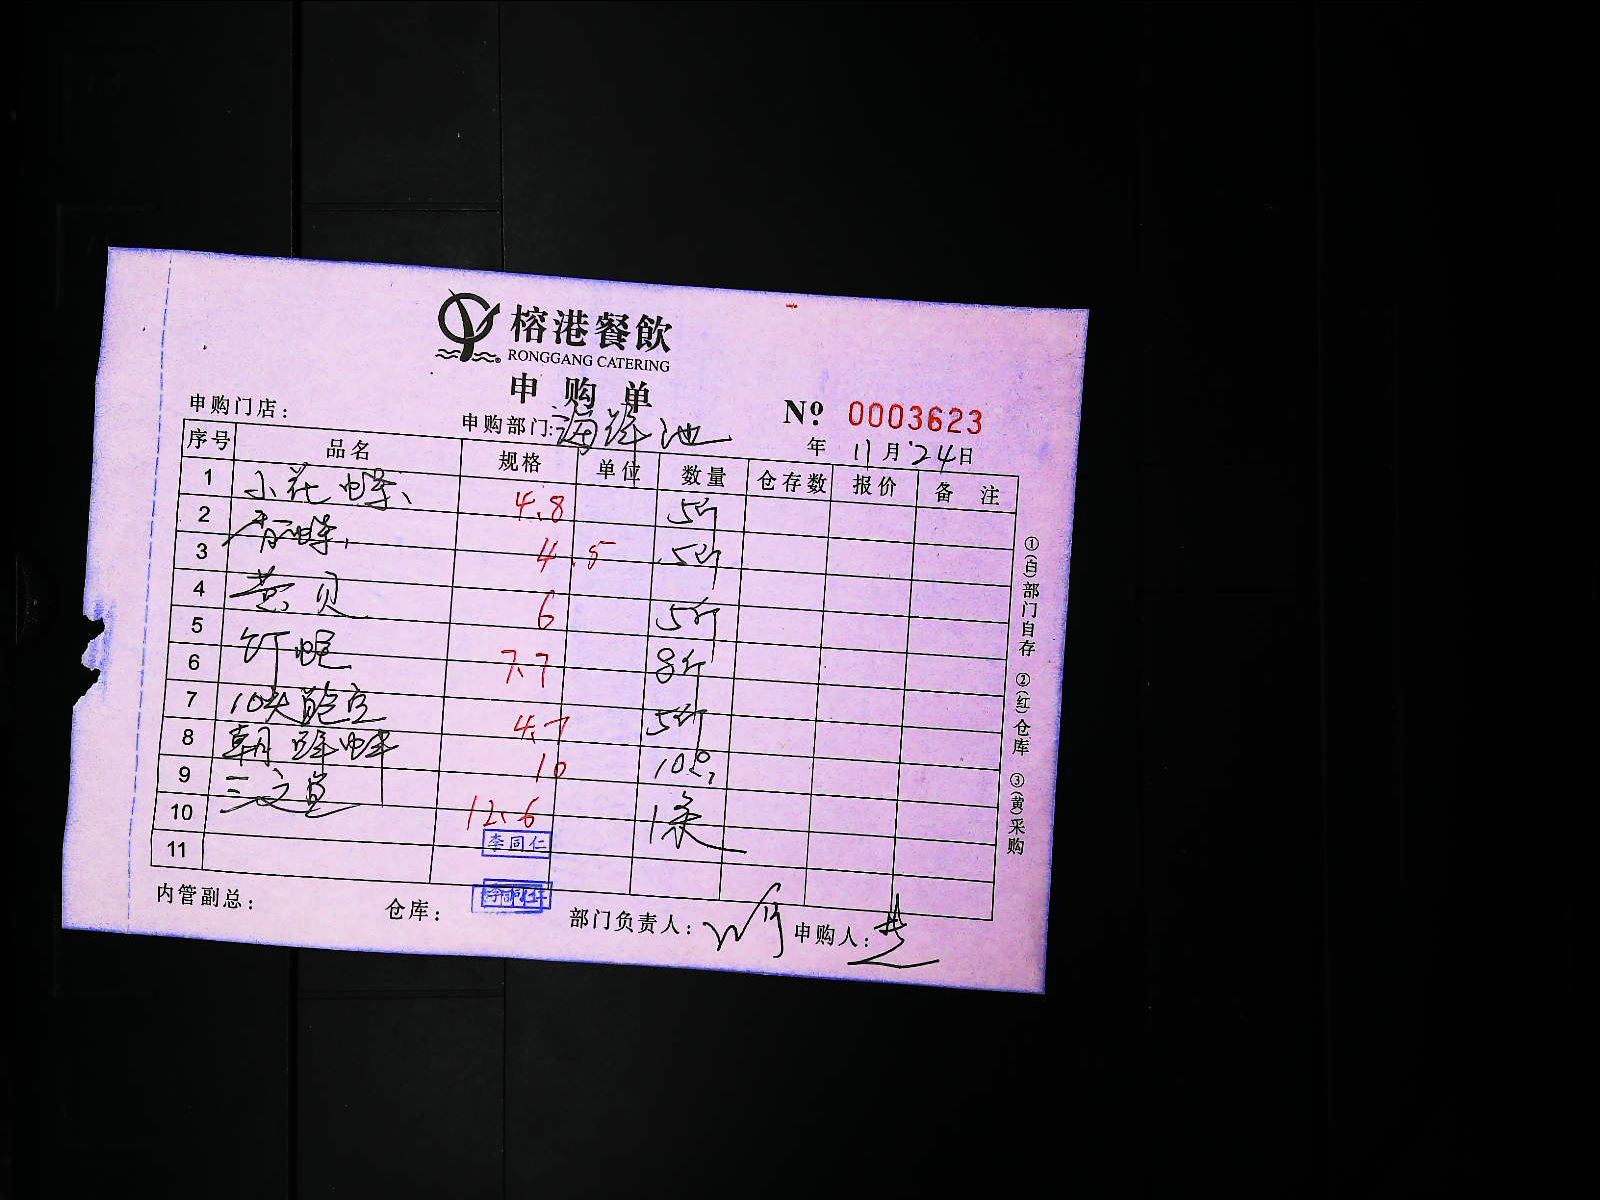 榕港餐飲
RONGGANG CATERING
申购单
Nº 0003623
申购门店： 申购部门: 海鲜池 年 11月24日
序号 品名 规格 单位 数量 仓存数 报价 备注
1 小花螺、 4.8 5斤
2 香螺、 4.5 5斤
3
4 黄贝 6 5斤
5 钉螺 7.7 8斤
6
7 10头鲍 4.7 5斤
8 10 10只
9 三文鱼 12.6 1条
10 李同仁
11
内管副总： 仓库： 李同仁 部门负责人： 申购人：
①(白)部门自存 ②(红)仓库 ③(黄)采购